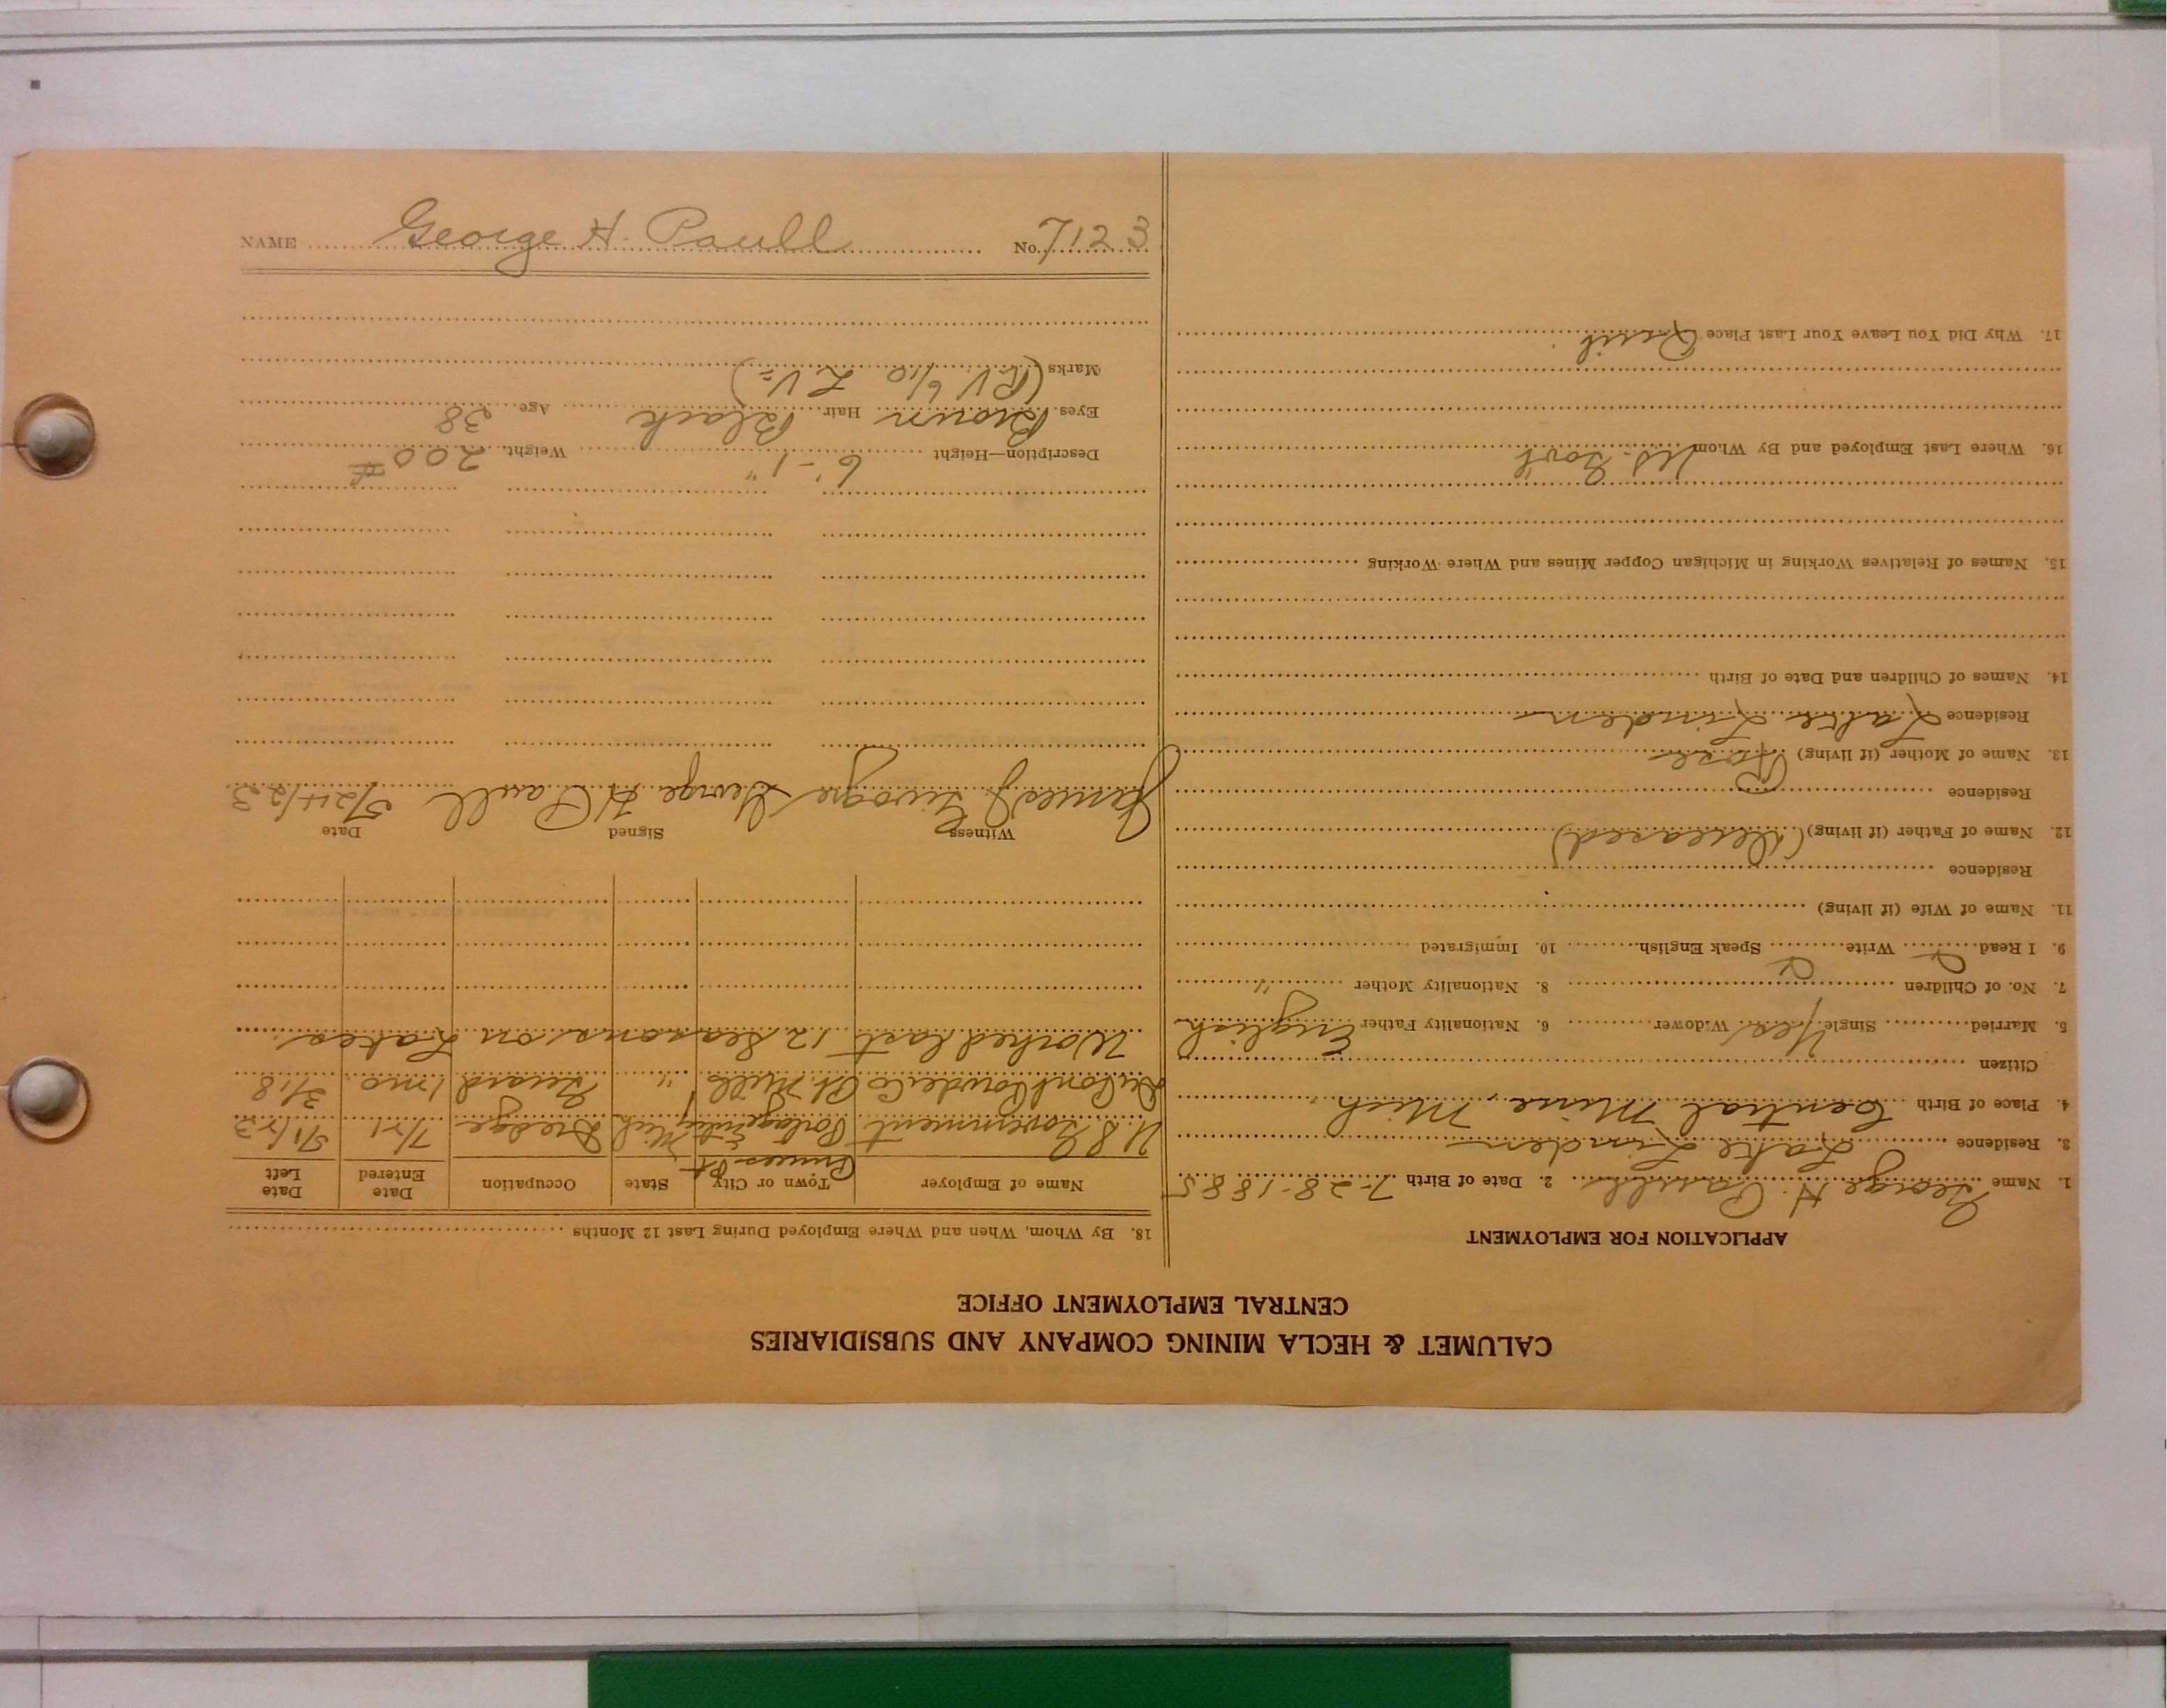 CALUMET & HECLA MINING COMPANY AND SUBSIDIARIES
CENTRAL EMPLOYMENT OFFICE
APPLICATION FOR EMPLOYMENT
1. Name George H. Paull 2. Date of Birth 7-28-1885
3. Residence Lake Linden
4. Place of Birth Central Mine, Mich
Citizen
5. Married Single Yes Widower 6. Nationality Father English
7. No. of Children 8. Nationality Mother "
9. I Read Write Speak English 10. Immigrated
11. Name of Wife (if living)
Residence
12. Name of Father (if living) (Deceased)
Residence
13. Name of Mother (if living) Rose
Residence Lake Linden
14. Names of Children and Date of Birth
15. Names of Relatives Working in Michigan Copper Mines and Where Working
16. Where Last Employed and By Whom U.S. Govt
17. Why Did You Leave Your Last Place Quit
18. By Whom, When and Where Employed During Last 12 Months
Name of Employer Town or City State Occupation Date Entered Date Left
Princess Pt
U.S. Government Portage Entry Mich Dredge 7/21 5/1/23
DuPont Powder Co Pt. Mills " Guard 1 mo. 3/18
Worked last 12 seasons on Lakes
Witness Signed Date
James J. George H Paull 5/24/23
Description—Height 6'-1" Weight 200 #
Eyes Brown Hair Black Age 38
Marks (RV 6/10 LV=)
NAME George H. Paull No. 7123